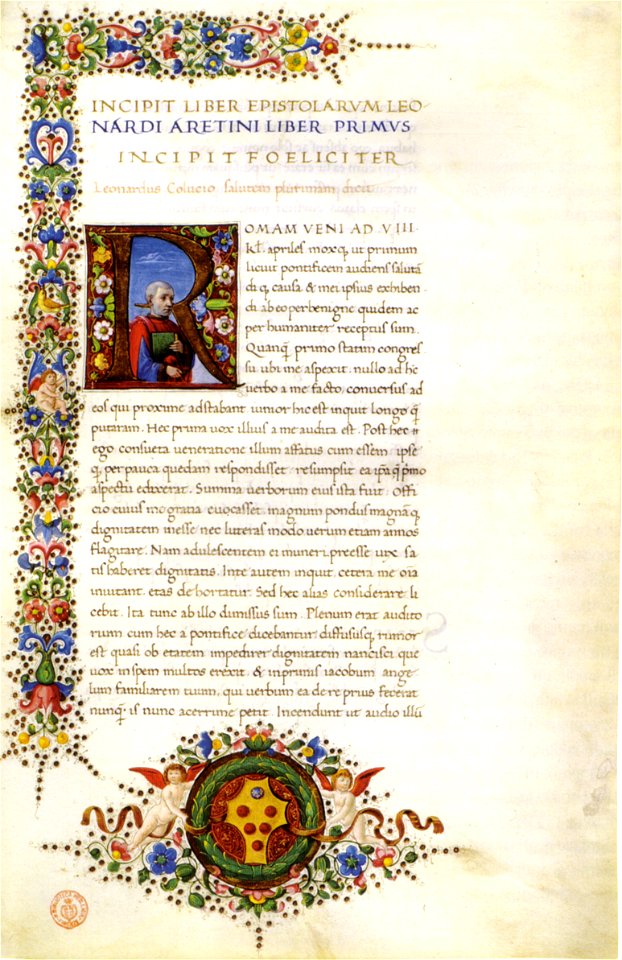 INCIPIT LIBER EPISTOLARVM LEO
NARDI ARETINI LIBER PRIMVS
INCIPIT FOELICITER
Leonardus Colucio salutem plurimam dicit
ROMAM VENI AD VIII
kł. apriles moxq, ut primum
licuit pontificem audiens salutā
di q, causa & mei ipsius exhiben
di ab eo perbenigne quidem ac
per humaniter receptus sum.
Quanq̄ primo statim congres
su ubi me aspexit nullo ad hc
verbo a me facto, conversus ad
eos qui proxime adstabant iunior hic est inquit longo q̄
putaram. Hec prima vox illius a me audita est. Post hec
ego consueta veneratione illum affatus cum essem ipse
q, per pauca quedam respondisset resumpsit ea ipa q̄ p̄mo
aspectu edixerat. Summa verborum eius ista fuit. Offi
cio cuius me gratia evocasset magnum pondus magnā q,
dignitatem inesse nec litteras modo verum etiam annos
flagitare. Nam adulescentem ei muneri preesse vix sa
tis haberet dignitatis. In te autem inquit cetera me oīa
invitant. etas dehortatur. Sed hec alias considerare li
cebit. Ita tunc ab illo dimissus sum. Plenum erat audito
rium cum hec a pontifice dicebantur diffususq, rumor
est quasi ob etatem impedirer dignitatem nancisci que
vox in spem multos erexit. & inprimis iacobum ange
lum familiarem tuum, qui verbum ea de re prius fecerat
nunq̄. is nunc acerrime petit. Incendunt ut audio illū